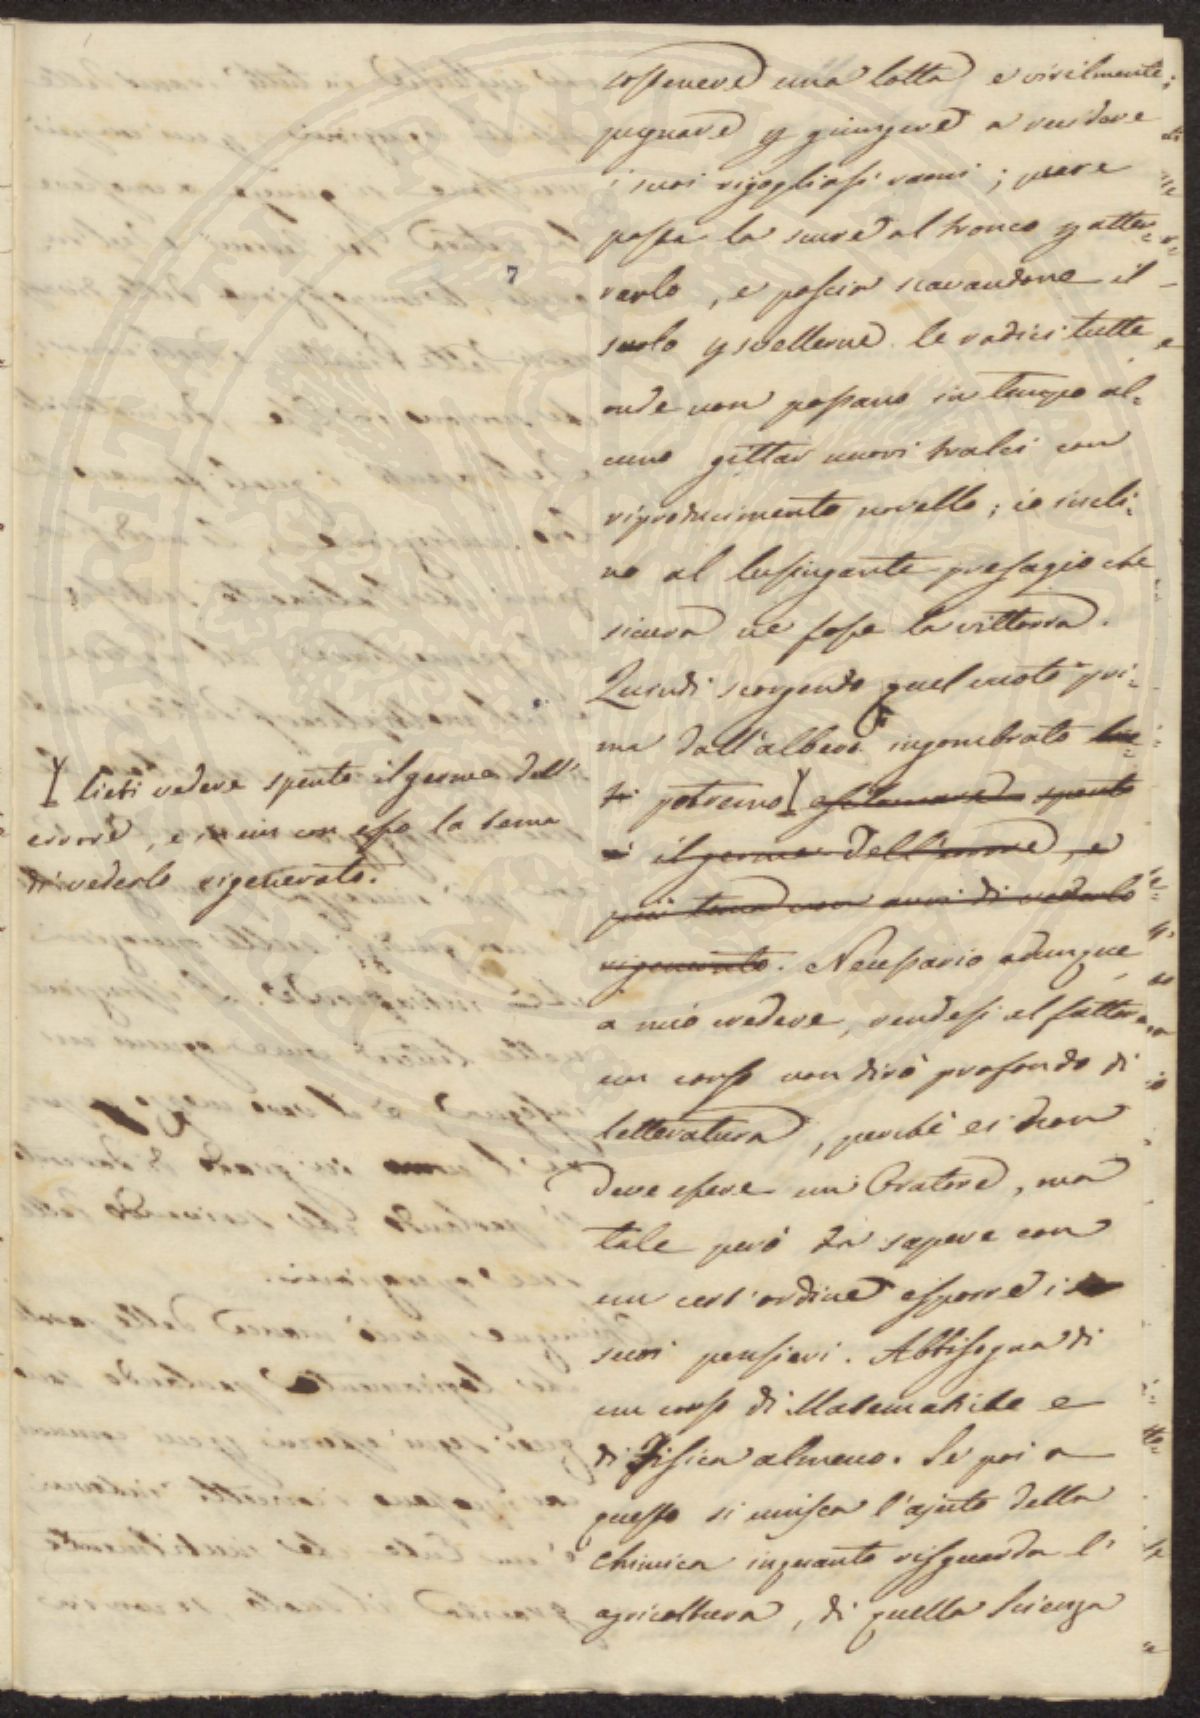 sostenere una lotta e virilmente
pugnare p giungere a recidere
i suoi rigogliosi rami; pure
possa la scure al tronco p atter=
rarlo, e poscia scavandone il
suolo p svellerne le radici tutte
onde non possano in tempo al=
cuno gittar nuovi tralci con
riproducimento novello; io incli=
no al lusingante presagio che
sicura ne fosse la vittoria.
Quindi scorgendo quel vuoto pri=
ma dall'albero ingombrato lie=
ti potremo spento
il germe dell'errore, e
più tema non aver di vederlo
rigenerato. Necessario adunque
a mio credere, rendesi al fattore
un corso non dirò profondo di
letteratura, perchè ei non
deve essere un Oratore, ma
tale però da sapere con
un cert'ordine esporre i
suoi pensieri. Abbisogna di
un corso di Matematiche e
di Fisica almeno. Se poi a
questo si unisca l'ajuto della
Chimica inquanto risguarda l'
agricoltura, di quella Scienza
lieti vedere spento il germe dell'
errore, e in un con esso la tema
di vederlo rigenerato.
7